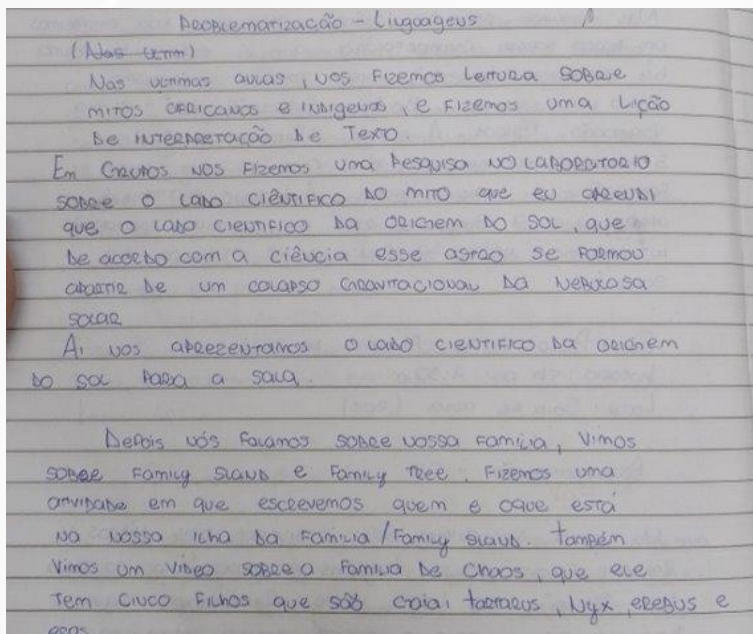 Problematização - Linguagens
(Nas ultm)
Nas ultimas aulas, nos fizemos leitura sobre
mitos africanos e indigenas, e fizemos uma lição
de interpretação de texto.
Em grupos nos fizemos uma pesquisa no laboratorio
sobre o lado ciêntifico do mito que eu aprendi
que o lado cientifico da origem do sol, que
de acordo com a ciência esse astro se formou
apartir de um colapso gravitacional da nebulosa
solar
Ai nos aprezentamos o lado cientifico da origem
do sol para a sala.
Depois nós falamos sobre nossa familia, vimos
sobre family sland e family tree. Fizemos uma
atividade em que escrevemos quem e oque está
na nossa ilha da familia/family sland. Também
vimos um video sobre a familia de chaos, que ele
tem cinco filhos que são Gaia, tartarus, Nyx, erebus e
eros